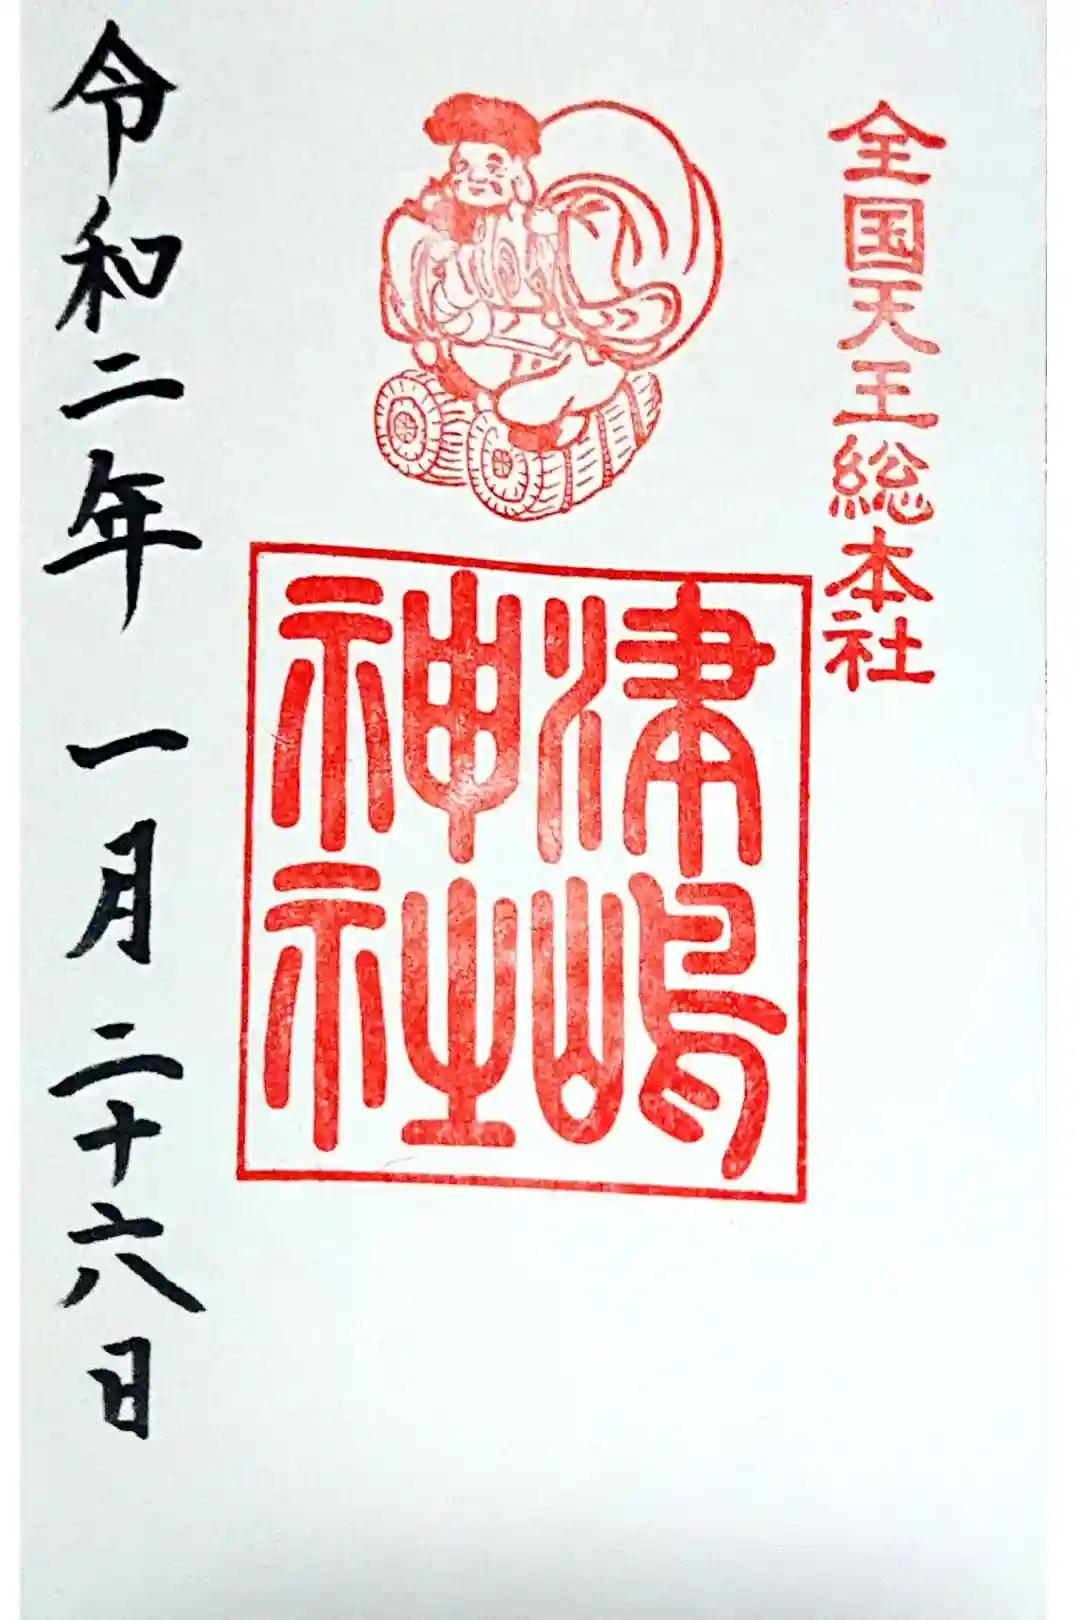 全国天王総本社
津嶋
神社
令和二年 一月二十六日